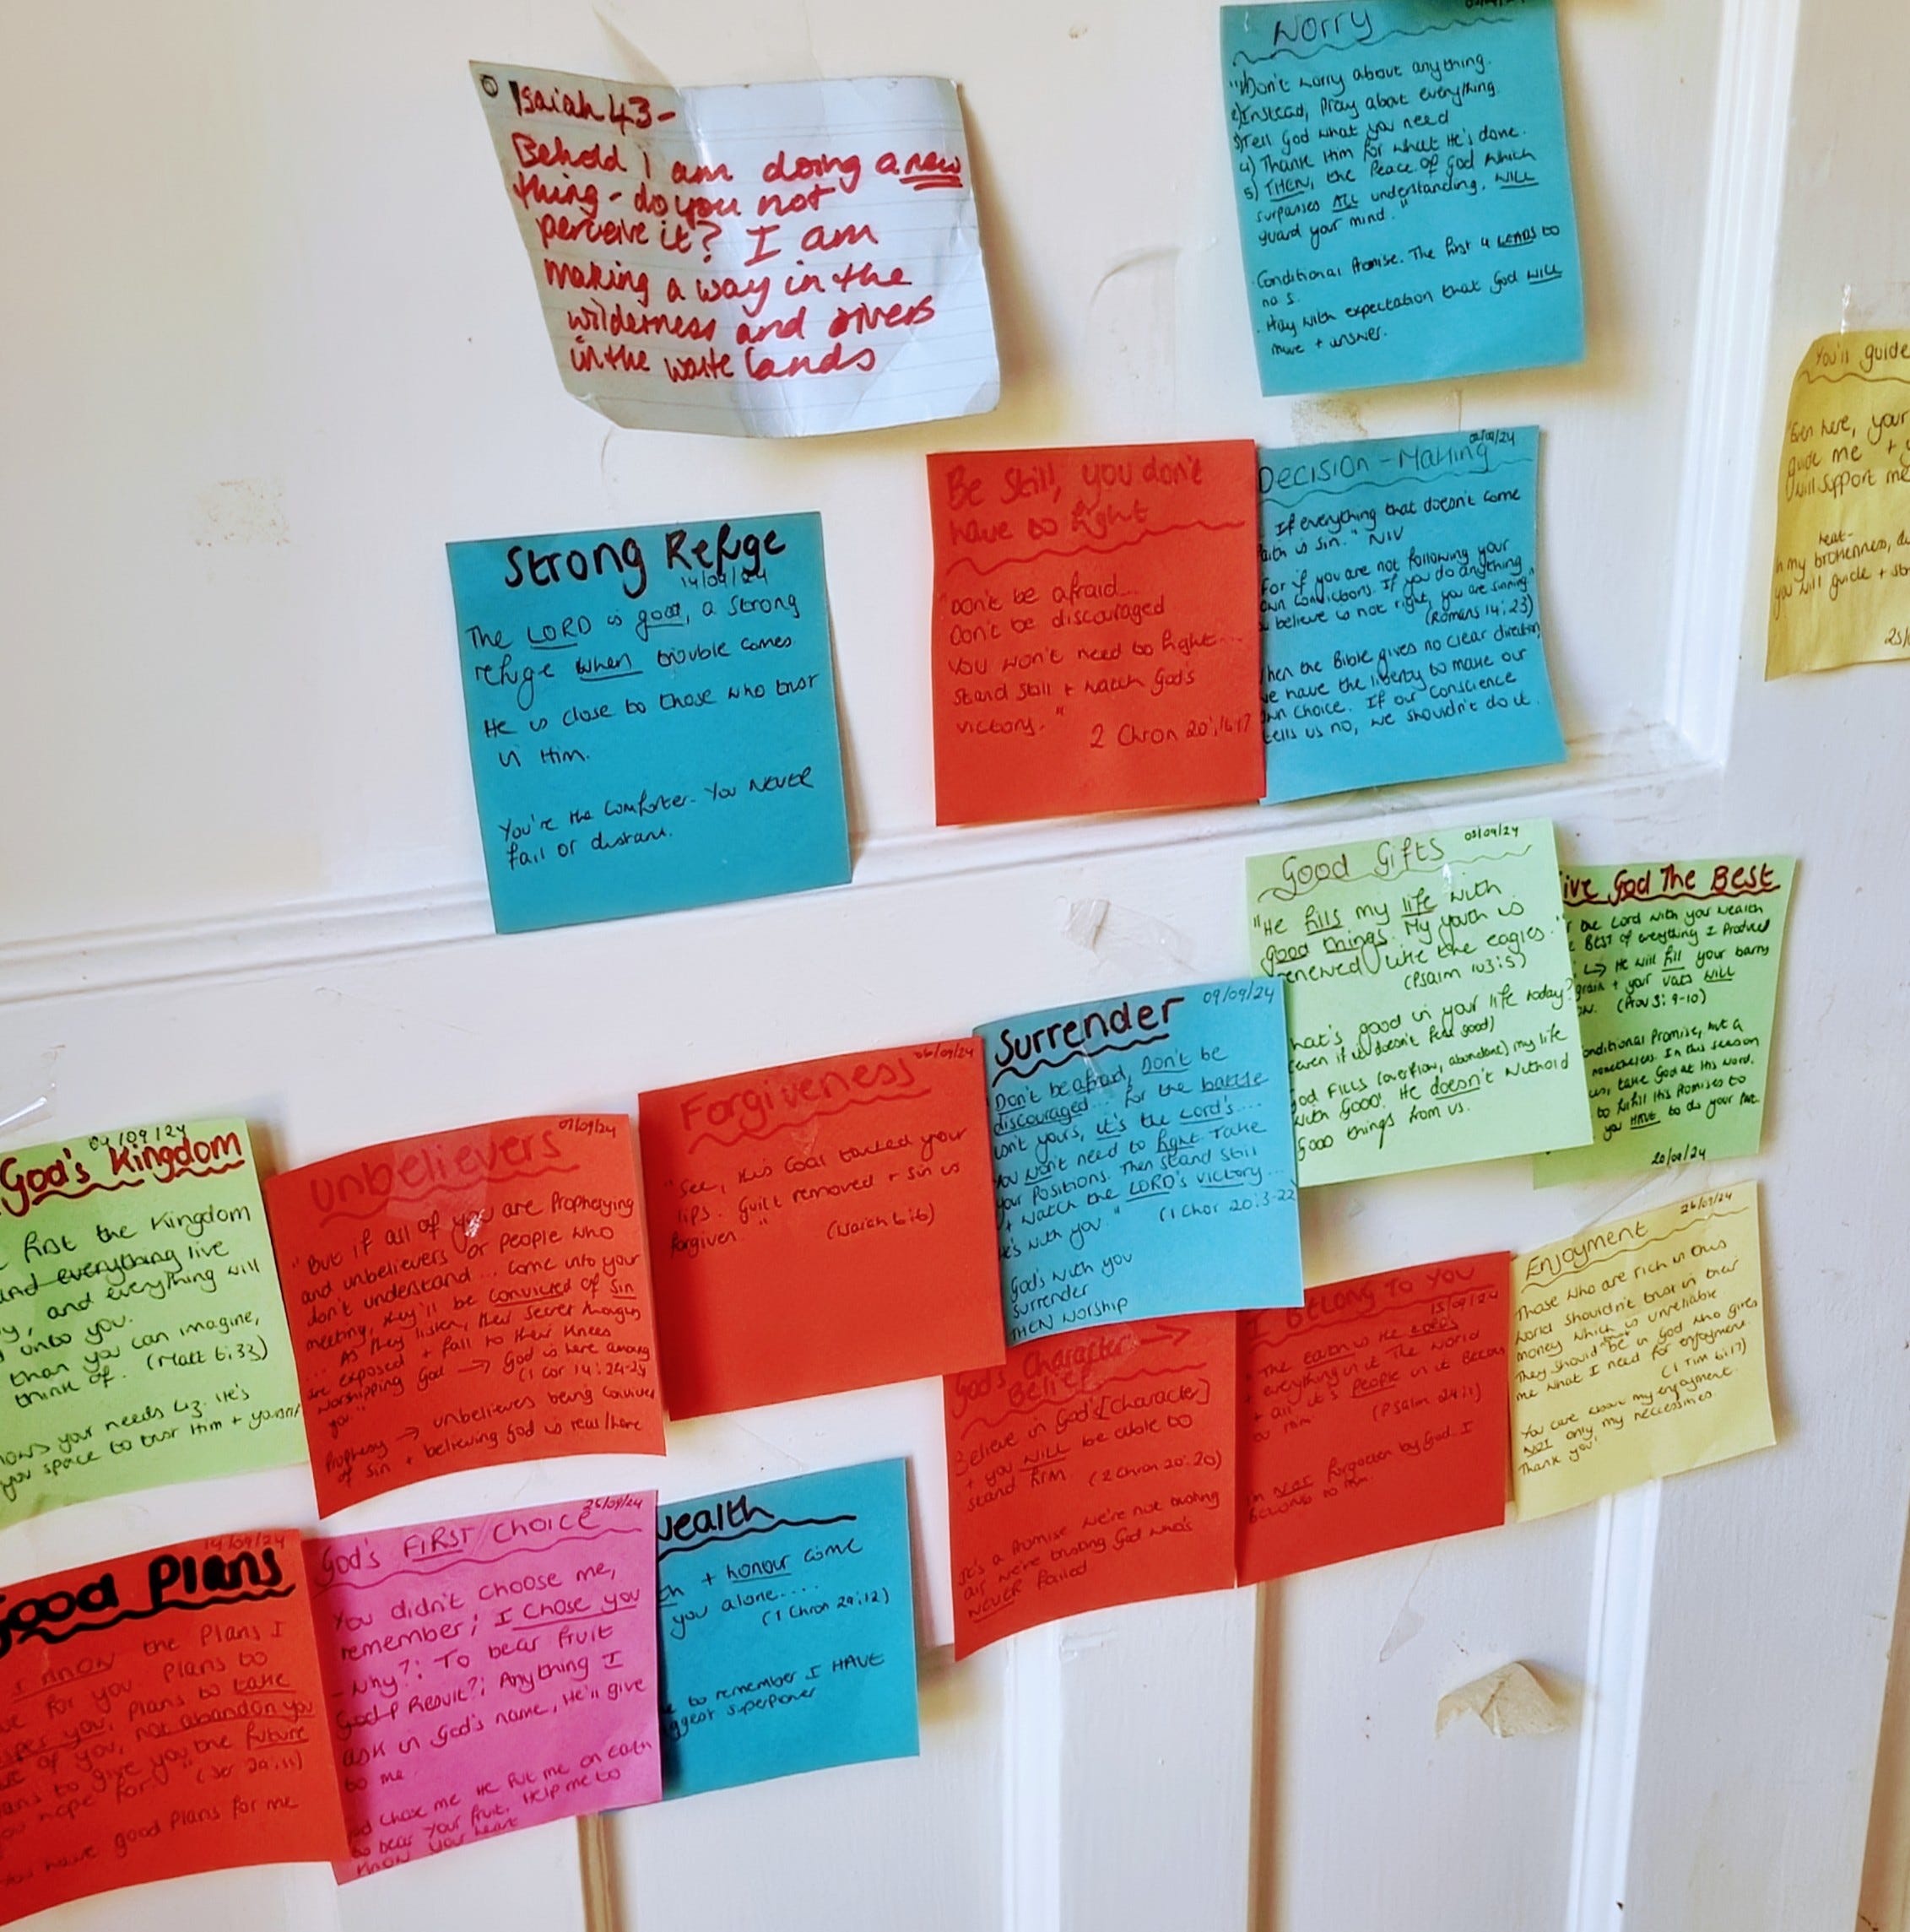 Isaiah 43-
Behold I am doing a new
thing - do you not
perceive it? I am
making a way in the
wilderness and rivers
in the waste lands
Worry
"1)Don't worry about anything.
2)Instead, pray about everything.
3)Tell God what you need
4) Thank Him for what He's done.
5) THEN, the Peace of God which
surpasses ALL understanding, WILL
guard your mind."
Conditional Promise. The first 4 LEADS to
no 5.
Pray with expectation that God WILL
move + answer.
You'll guide
"Even here, your
guide me + y
will support me
heat-
n my brokenness, du
you will guide + str
25/0
Strong Refuge
14/09/24
The LORD is good, a strong
refuge when trouble comes
He is close to those who trust
in Him.
You're the Comforter. You NEVER
fail or
Be Still, you don't
have to fight
"Don't be afraid...
Don't be discouraged
You won't need to fight...
Stand Still + watch God's
victory."
2 Chron 20:16-17
Decision-Making
If everything that doesn't come
faith is Sin." NIV
For if you are not following your
own convictions. If you do anything
u believe is not right, you are sinning."
(Romans 14:23)
hen the Bible gives no clear direction,
we have the liberty to make our
own choice. If our conscience
tells us no, we shouldn't do it.
Good Gifts
03/09/24
"He fills my life with
good things. My youth is
renewed like the eagles."
(Psalm 103:5)
hat's good in your life today?
(even if it doesn't feel good)
God FILLS (overflow, abundane) my life
with GOOD! He doesn't withold
GOOD things from us.
ive God The Best
r the Lord with your wealth
e BEST of everything I produced
↳ He will fill your barns
grain + your vats WILL
(Prov 3:9-10)
onditional Promise, but a
nonetheless. In this season
take God at His word.
to fulfil His Promises to
you HAVE to do your Part.
20/09/24
Surrender
09/09/24
Don't be afraid, Don't be
discouraged... for the battle
isn't yours, it's the Lord's....
You won't need to fight. Take
your positions. Then stand still
+ watch the LORD's victory...
He's with you."
(1 Chor 20:3-22
God's with you
Surrender
THEN worship
Forgiveness
06/09/24
"See, this Coal touched your
lips. Guilt removed + sin is
forgiven."
(Isaiah 6:6)
Unbelievers
07/09/24
"But if all of you are Prophesying
and unbelievers or people who
don't understand ... come into your
meeting, they'll be convicted of Sin
... As they listen, their secret thoughts
are exposed + fall to their knees
worshipping God → God is here among
you."
(1 Cor 14:24-25
Prophesy → unbelievers being convicted
of Sin + believing God is real/here
04/09/24
God's Kingdom
first the Kingdom
and everything live
y, and everything will
d unto you.
than you can imagine,
think of. (Matt 6:33)
nows your needs He's
you space to trust Him + yourself
God's Character →
Belief
Believe in God's [Character]
+ you WILL be able to
stand firm
(2 Chron 20:20)
It's a Promise we're not trusting
air we're trusting God who's
NEVER failed
I Belong To You
15/09/24
The earth is the LORDS
+ everything in it The world
+ all it's people in it Belong
to Him
(Psalm 24:1)
m NOT forgotten by God. I
BELONG to Him.
Enjoyment
26/09/24
Those who are rich in this
world shouldn't trust in their
money which is unreliable.
They should be in God who gives
me what I need for enjoyment.
(1 Tim 6:17)
You care about my enjoyment.
NOT only my neccessities.
Thank you!
19/09/24
Good Plans
I KNOW the Plans I
ve for you Plans to
osper you, Plans to take
re of you, not abandon you
ans to give you the future
ou hope for"
(Jer 29:11)
You have good Plans for me
God's FIRST Choice
25/09/24
You didn't choose me,
remember; I Chose you
- Why?: To bear fruit
God P Result?: Anything I
ask in God's name, He'll give
to me
God chose me. He put me on earth
to bear your fruit. Help me to
know your heart
Wealth
th + honour come
you alone....
(1 Chron 29:12)
e to remember I HAVE
iggest superpower